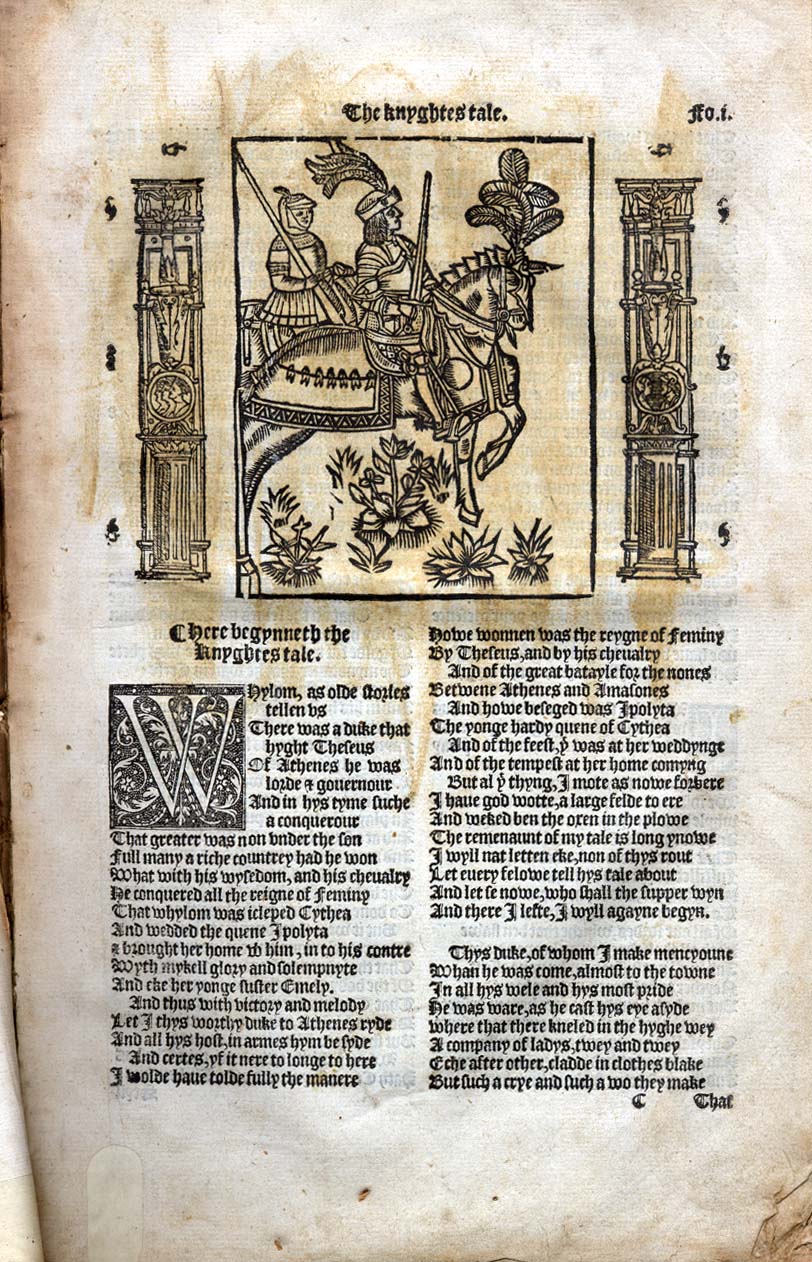 The knyghtes tale.
Fo.i.
¶Here begynneth the
Knyghtes tale.
WHylom, as olde stories
tellen vs
There was a duke that
hyght Theseus
Of Athenes he was
lorde & gouernour
And in hys tyme suche
a conquerour
That greater was non vnder the son
Full many a riche countrey had he won
What with his wysedom, and his cheualry
He conquered all the reigne of Feminy
That whylom was icleped Cythea
And wedded the quene Ipolyta
& brought her home wͭ him, in to his contre
Wyth mykell glory and solempnyte
And eke her yonge suster Emely.
And thus with victory and melody
Let I thys worthy duke to Athenes ryde
And all hys host, in armes hym be syde
And certes, yf it nere to longe to here
I wolde haue tolde fully the manere
Howe wonnen was the reygne of Feminy
By Theseus, and by his cheualry
And of the great batayle for the nones
Betwene Athenes and Amasones
And howe beseged was Ipolyta
The yonge hardy quene of Cythea
And of the feest, yͭ was at her weddynge
And of the tempest at her home comyng
But al yͭ thyng, I mote as nowe forbere
I haue god wotte, a large felde to ere
And weked ben the oxen in the plowe
The remenaunt of my tale is long ynowe
I wyll nat letten eke, non of thys rout
Let euery felowe tell hys tale about
And let se nowe, who shall the supper wyn
And there I lefte, I wyll agayne begyn.
Thys duke, of whom I make mencyoune
Whan he was come, almost to the towne
In all hys wele and hys most pride
He was ware, as he cast hys eye asyde
Where that there kneled in the hyghe wey
A company of ladys, twey and twey
Eche after other, cladde in clothes blake
But such a crye and such a wo they make
C That